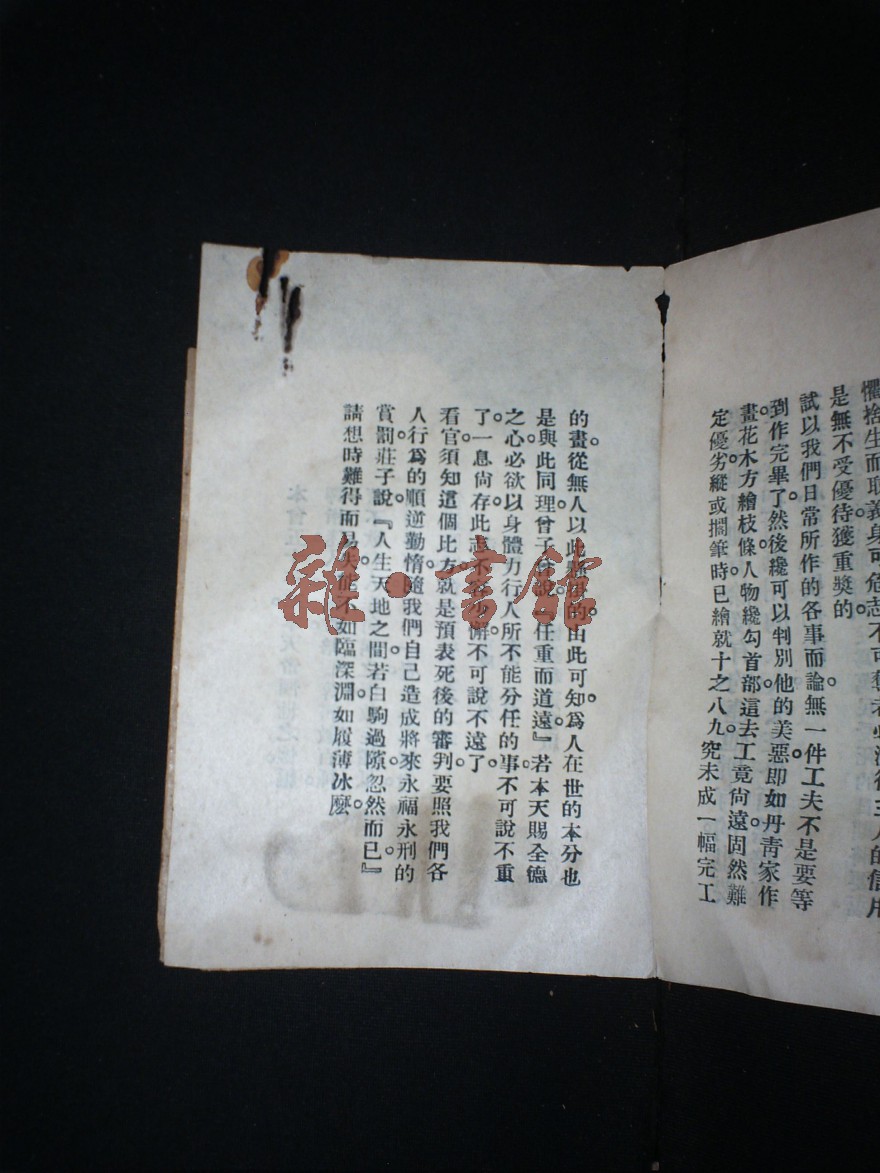 懼捨生而取義身可危志不可奪者必深得主人的信用
是無不受優待獲重獎的
試以我們日常所作的各事而論。無一件工夫不是要等
到作完畢了。然後纔可以判別他的美惡。即如丹靑家作
畫。花木方繪枝條。人物纔勾首部。這去工竟尙遠。固然難
定優劣。縱或擱筆時已繪就十之八九。究未成一幅完工
的畫。從無人以此
的。由此可知。爲人在世的本分。也
是與此同理。曾子
說『任重而道遠』。若本天賜全德
之心。必欲以身體力行人所不能分任的事。不可說不重
了。一息尙存。此志不容少懈。不可說不遠了。
看官須知這個比方。就是預表死後的審判。要照我們各
人行爲的順逆勤惰。隨我們自己造成將來永福永刑的
賞罰。莊子說。『人生天地之間。若白駒過隙。忽然而已。』
請想時難得而易失。能不如臨深淵。如履薄冰麼。
雜·書館